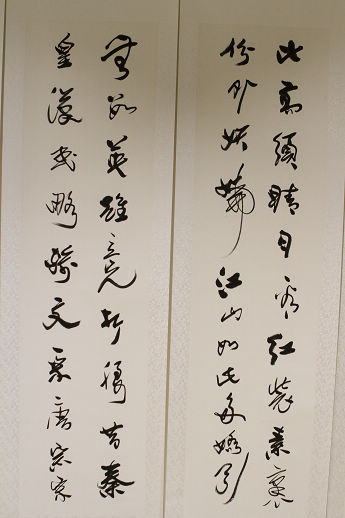 比高須晴日看紅裝素裹
份外妖嬈江山如此多嬌引
無數英雄竞折腰昔秦
皇漢武略輸文采唐宗宋